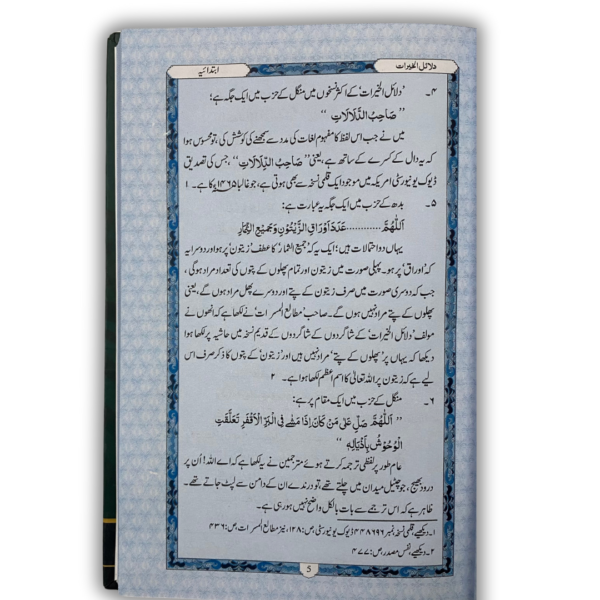 دلائل الخیرات
ابتدائیہ
۴۔ 'دلائل الخیرات' کے اکثر نسخوں میں منگل کے حزب میں ایک جگہ ہے؛
'' صَاحِبُ الدَّلَالَاتِ ''
میں نے جب اس لفظ کا مفہوم لغات کی مدد سے سمجھنے کی کوشش کی، تو محسوس ہوا
کہ یہ دال کے کسرے کے ساتھ ہے، یعنی '' صَاحِبُ الدِّلَالَاتِ ''، جس کی تصدیق
ڈیوک یونیورسٹی امریکہ میں موجود ایک قلمی نسخہ سے بھی ہوتی ہے، جو غالباً ۱۳۶۵ء کا ہے۔ ۱
۵۔ بدھ کے حزب میں ایک جگہ یہ عبارت ہے:
اَللّٰهُمَّ ............ عَدَدَ اَوْرَاقِ الزَّيْتُوْنِ وَجَمِيْعِ الثِّمَارِ
یہاں دو احتمالات ہیں؛ ایک یہ کہ 'جمیع الثمار' کا عطف 'زیتون' پر ہو اور دوسرا یہ
کہ 'اوراق' پر ہو۔ پہلی صورت میں زیتون اور تمام پھلوں کے پتوں کی تعداد مراد ہوگی،
جب کہ دوسری صورت میں صرف زیتون کے پتے اور دوسرے پھل مراد ہوں گے، یعنی
پھلوں کے پتے مراد نہیں ہوں گے۔ صاحب 'مطالع المسرات' نے لکھا ہے کہ انھوں نے
مولف 'دلائل الخیرات' کے شاگردوں کے شاگردوں کے قدیم نسخہ میں حاشیہ پر لکھا ہوا
دیکھا کہ یہاں پر 'پھلوں کے پتے' مراد نہیں ہیں اور 'زیتون' کے پتوں کا ذکر صرف اس
لیے ہے کہ زیتون پر اللہ تعالیٰ کا اسم اعظم لکھا ہوا ہے۔ ۲
۶۔ منگل کے حزب میں ایک مقام پر ہے:
'' اَللّٰهُمَّ صَلِّ عَلٰى مَنْ كَانَ اِذَا مَشٰى فِى الْبَرِّ الْاَقْفَرِ تَعَلَّقَتِ
الْوُحُوْشُ بِاَذْيَالِهٖ ''
عام طور پر لفظی ترجمہ کرتے ہوئے مترجمین نے یہ لکھا ہے کہ اے اللہ! اُن پر
درود بھیج، جو چٹیل میدان میں چلتے تھے، تو درندے ان کے دامن سے لپٹ جاتے تھے۔
ظاہر ہے کہ اس ترجمے سے بات بالکل واضح نہیں ہو رہی ہے۔
۱۔ دیکھیے، قلمی نسخہ نمبر ۴۴۸۶۹۶ ڈیوک یونیورسٹی، ص: ۱۲۸، نیز مطالع المسرات، ص: ۴۳۶
۲۔ دیکھیے، نفس مصدر، ص: ۴۷۷
5